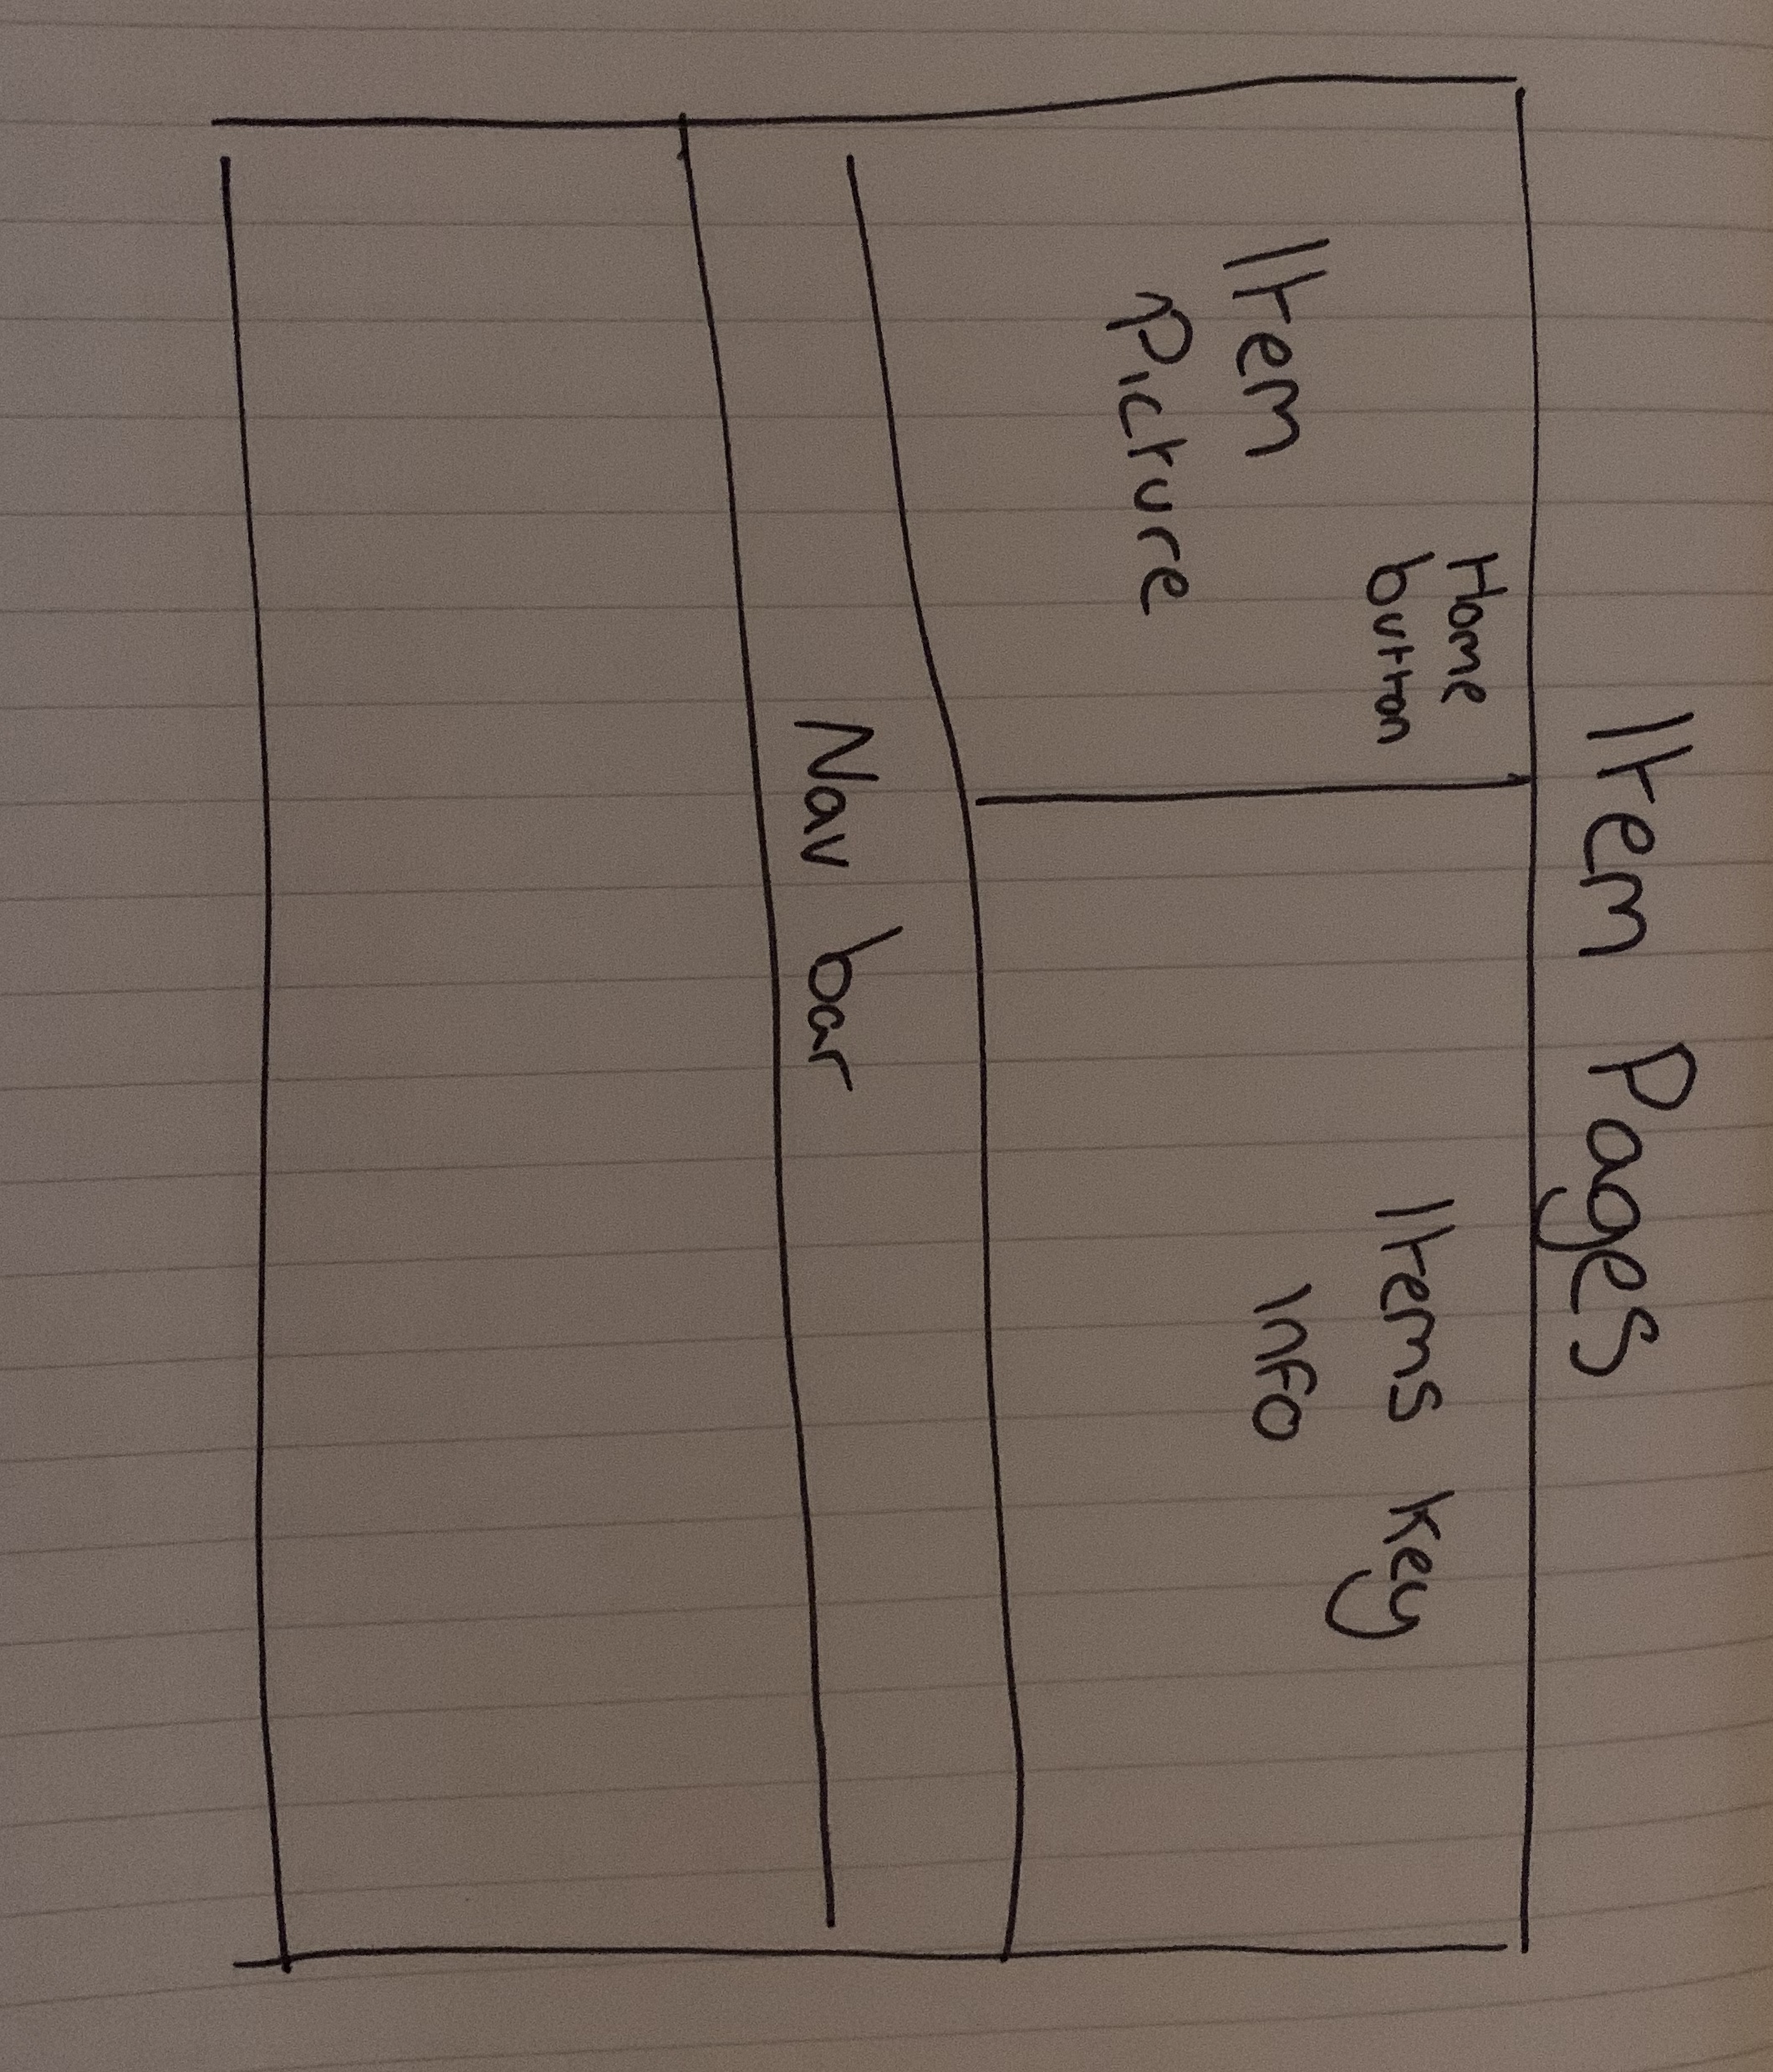 Item Pages
Home
button
Item
Picture
Items Key
info
Nav bar